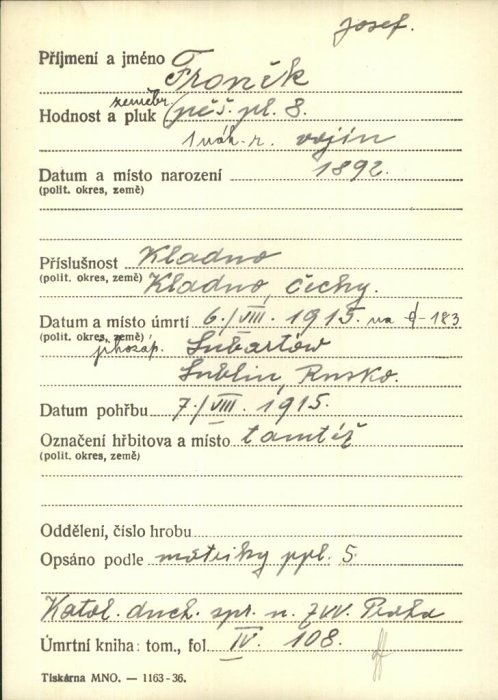 Josef.
Příjmení a jméno Froněk
zeměbr.
Hodnost a pluk (pěš. pl. 8.
1 náh. r. vojín
Datum a místo narození 1892.
(polit. okres, země)
Příslušnost Kladno
(polit. okres, země) Kladno, Čechy.
Datum a místo úmrtí 6./VIII. 1915. na 183
(polit. okres, země) jihozáp. Lubartów
Lublin, Rusko.
Datum pohřbu 7./VIII. 1915.
Označení hřbitova a místo tamtéž
(polit. okres, země)
Oddělení, číslo hrobu
Opsáno podle matriky ppl. 5.
Katol. duch. spr. u ZVV. Praha
Úmrtní kniha: tom., fol IV. 108.
Tiskárna MNO. — 1163-36.